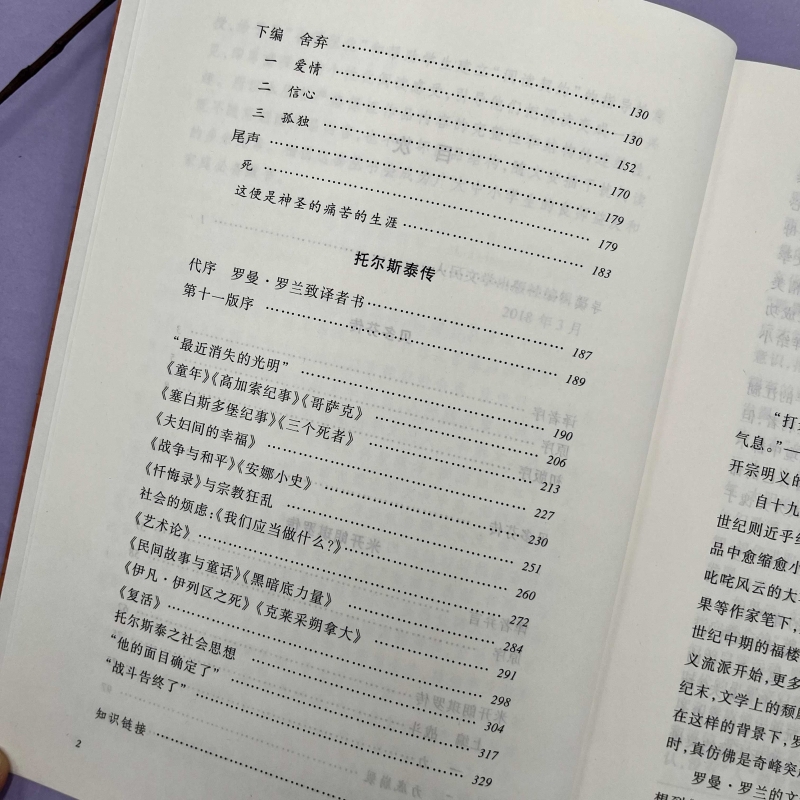 下编　舍弃 130
一　爱情 130
二　信心 152
三　孤独 170
尾声 179
死 179
这便是神圣的痛苦的生涯 183
托尔斯泰传
代序　罗曼·罗兰致译者书 187
第十一版序 189
“最近消失的光明” 190
《童年》《高加索纪事》《哥萨克》 206
《塞白斯多堡纪事》《三个死者》 213
《夫妇间的幸福》 227
《战争与和平》《安娜小史》 230
《忏悔录》与宗教狂乱 251
社会的烦虑：《我们应当做什么？》 260
《艺术论》 272
《民间故事与童话》《黑暗底力量》 284
《伊凡·伊列区之死》《克莱采朔拿大》 291
《复活》 298
托尔斯泰之社会思想 304
“他的面目确定了” 317
“战斗告终了” 329
知识链接
2
“打
气息。”—
开宗明义的
自十九
世纪则近乎
品中愈缩愈小
叱咤风云的大
果等作家笔下，
世纪中期的福楼
义流派开始，更多
纪末，文学上的颓
在这样的背景下，罗
时，真仿佛是奇峰突
罗曼·罗兰的文